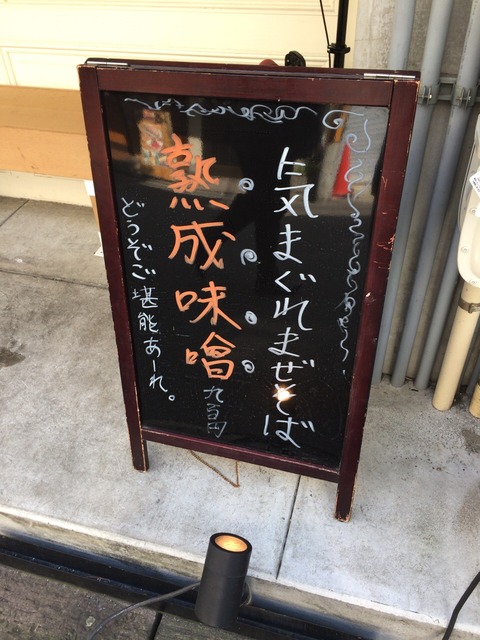 気まぐれまぜそば
熟成味噌
九百円
どうぞご堪能あーれ。